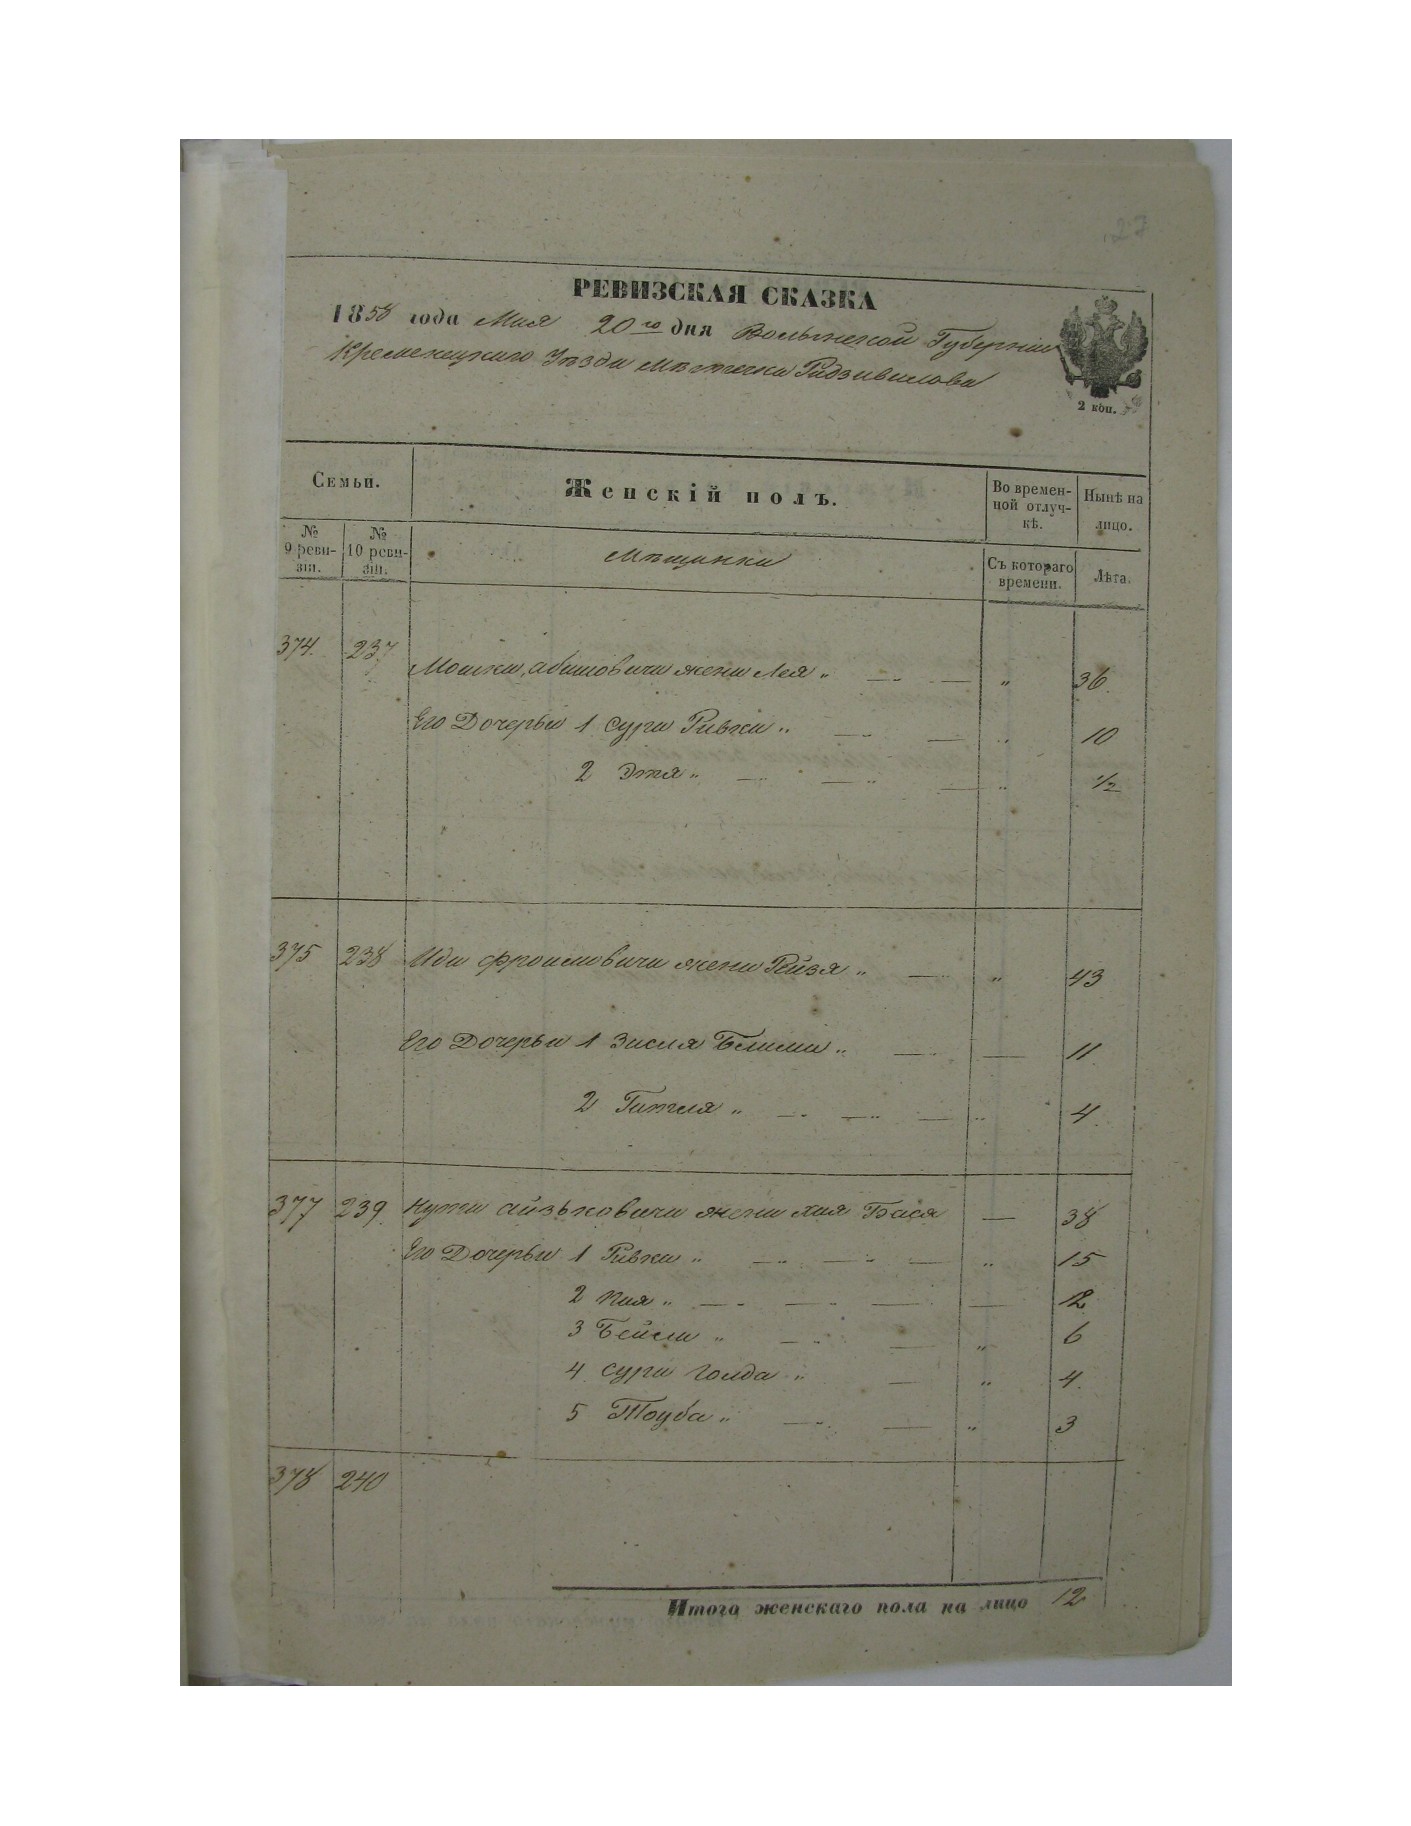 27
РЕВИЗСКАЯ СКАЗКА
1858 года Мая 20го дня Волынской Губерніи
Кременецкаго Уѣзда Мѣстечка Радзивилова
2 коп.
Семьи. Женскій полъ. Во времен- Нынѣ на
ной отлуч- лицо.
кѣ.
№ № Мѣщанки Съ котораго Лѣта.
9 реви- 10 реви- времени.
зіи. зіи.
374. 237 Мошка Абшовича жена Лея „ — „ — „ 36.
Его Дочерьи 1 Сура Ривка „ — „ — „ 10
2 Этя „ — „ — „ — „ 1/2
375 238 Ида Фроимовича жена Рейзя „ — „ „ 43
Его Дочерьи 1 Зисля „ — „ — 11
2 Гитля „ — „ — „ — „ 4.
377 239. айзыковича жена Хая Бася — 38
Его Дочерьи 1 Ривка „ — „ — „ — „ 15
2 „ — „ — „ — „ — 12
3 Бейла „ — „ — „ 6
4 Сура Голда „ — „ 4.
5 Тоуба „ — „ — „ 3
378 240
Итого женскаго пола на лицо 12